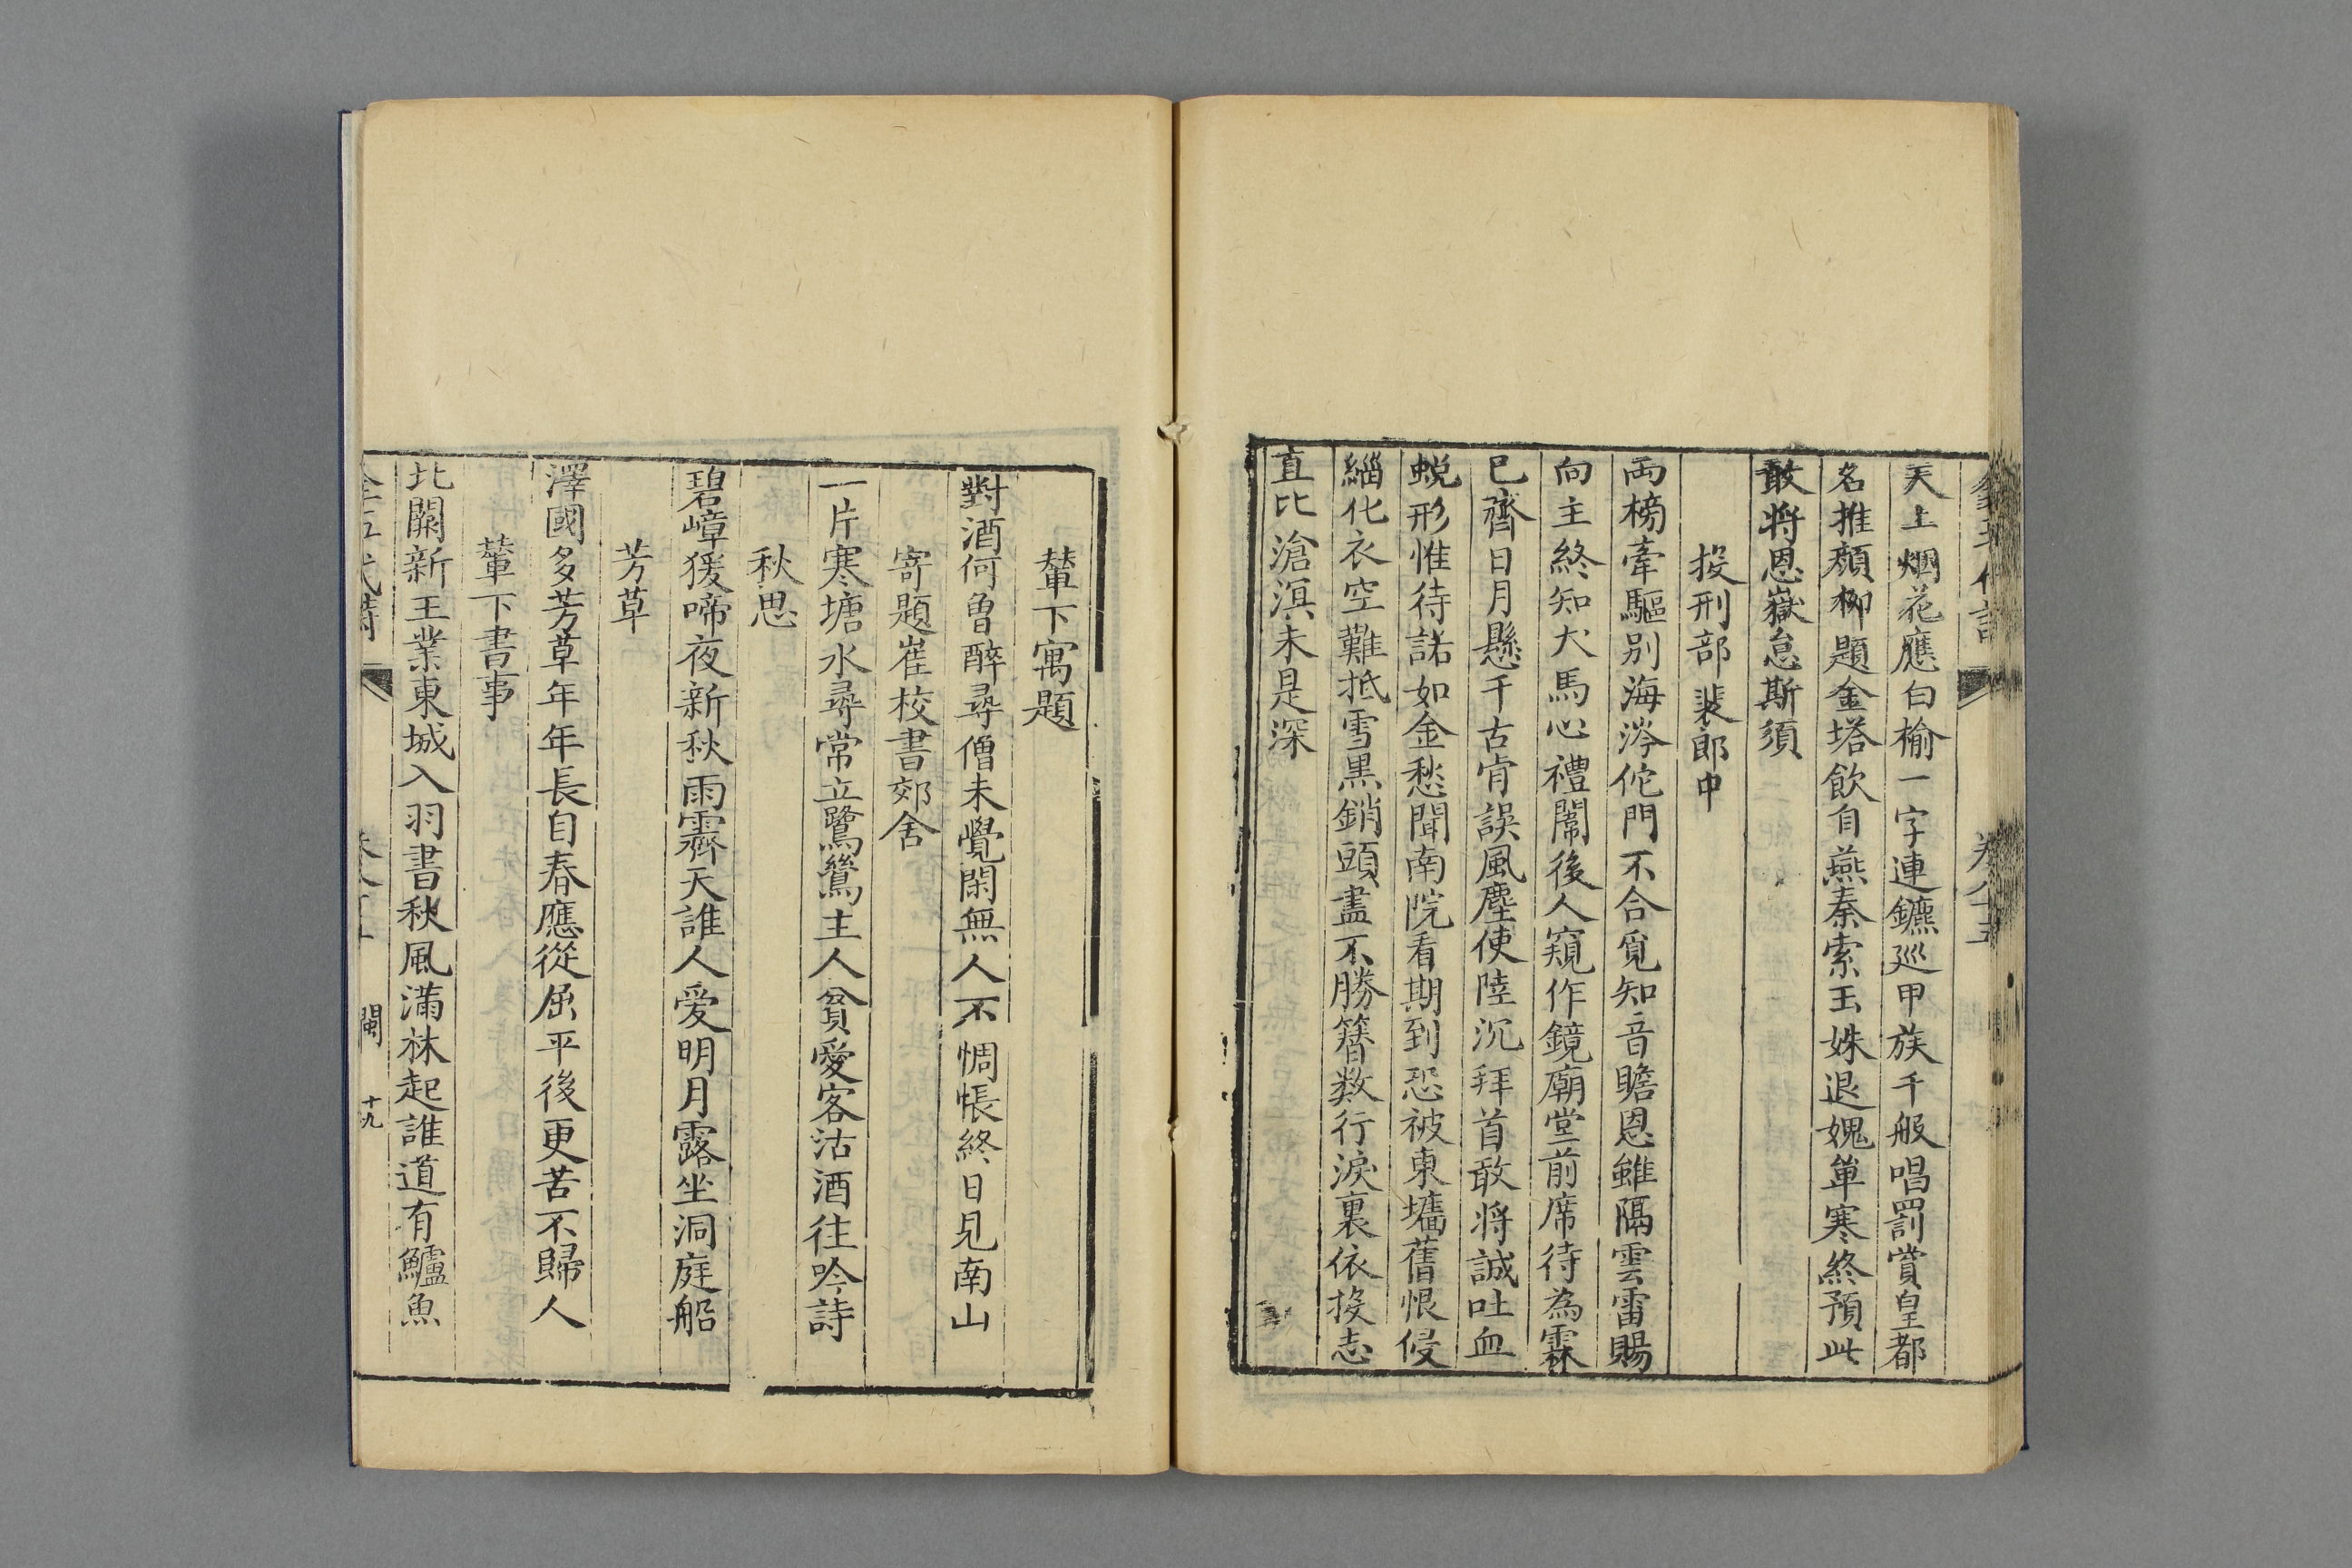 天上烟花應白榆一字連鑣廵甲族千般唱罰賞皇都
名推顏柳題金塔飲自燕秦索玉姝退媿單寒終預此
敢將恩嶽怠斯須
投刑部裴郎中
兩榜牽驅別海涔佗門不合覓知音瞻恩雖隔雲雷賜
向主終知犬馬心禮闈後人窺作鏡廟堂前席待為霖
已齊日月懸千古肯誤風塵使陸沉拜首敢將誠吐血
蛻形惟待諾如金愁聞南院看期到恐被東墻舊恨侵
緇化衣空難抵雪黑銷頭盡不勝簪数行淚裏依投志
直比滄溟未是深
輦下寓題
對酒何曾醉尋僧未覺閑無人不惆悵終日見南山
寄題崔校書郊舍
一片寒塘水尋常立鷺鷥主人貧愛客沽酒往吟詩
秋思
碧嶂猨啼夜新秋雨霽天誰人愛明月露坐洞庭船
芳草
澤國多芳草年年長自春應從屈平後更苦不歸人
輦下書事
北闕新王業東城入羽書秋風滿林起誰道有鱸魚
全五代詩
閩
十九